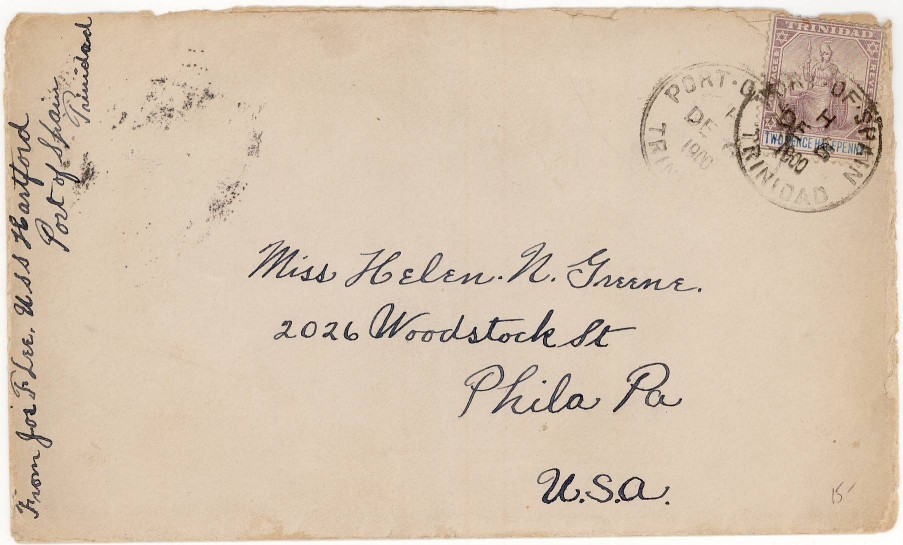 From Jos F Lee. U S S Hartford
Port of Spain
Trinidad
TRINIDAD
TWO PENCE HALFPENNY
PORT-O
A
DE
1900
TRIN
PORT-OF-SPAIN
H
DE 8
1900
TRINIDAD
Miss Helen. N. Greene.
2026 Woodstock St
Phila Pa
U.S.A.
15-